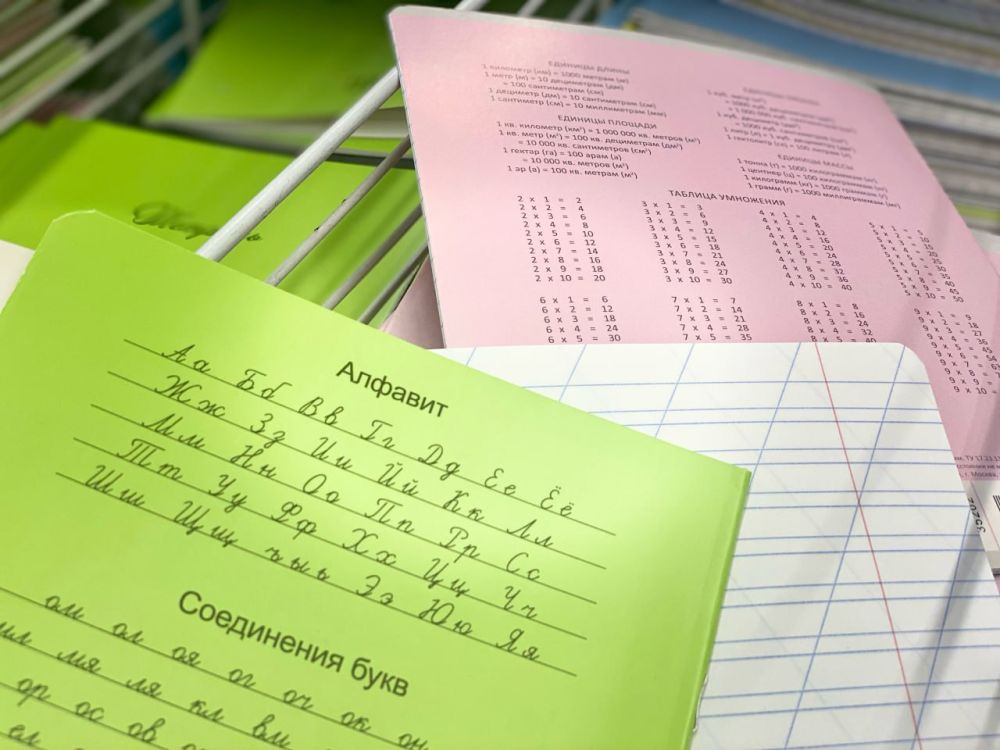 ЕДИНИЦЫ ДЛИНЫ
1 километр (км) = 1000 метрам (м)
1 метр (м) = 10 дециметрам (дм)
= 100 сантиметрам (см)
1 дециметр (дм) = 10 сантиметрам (см)
1 сантиметр (см) = 10 миллиметрам (мм)
ЕДИНИЦЫ ПЛОЩАДИ
1 кв. километр (км²) = 1 000 000 кв. метров (м²)
1 кв. метр (м²) = 100 кв. дециметрам (дм²)
= 10 000 кв. сантиметров (см²)
1 гектар (га) = 100 арам (а)
= 10 000 кв. метров (м²)
1 ар (а) = 100 кв. метрам (м²)
ЕДИНИЦЫ МАССЫ
1 тонна (т) = 1000 килограммам (кг)
1 центнер (ц) = 100 килограммам (кг)
1 килограмм (кг) = 1000 граммам (г)
1 грамм (г) = 1000 миллиграммам (мг)
ТАБЛИЦА УМНОЖЕНИЯ
2 x 1 = 2
2 x 2 = 4
2 x 3 = 6
2 x 4 = 8
2 x 5 = 10
2 x 6 = 12
2 x 7 = 14
2 x 8 = 16
2 x 9 = 18
2 x 10 = 20
3 x 1 = 3
3 x 2 = 6
3 x 3 = 9
3 x 4 = 12
3 x 5 = 15
3 x 6 = 18
3 x 7 = 21
3 x 8 = 24
3 x 9 = 27
3 x 10 = 30
4 x 1 = 4
4 x 2 = 8
4 x 3 = 12
4 x 4 = 16
4 x 5 = 20
4 x 6 = 24
4 x 7 = 28
4 x 8 = 32
4 x 9 = 36
4 x 10 = 40
5 x 1 = 5
5 x 2 = 10
5 x 3 = 15
5 x 4 = 20
5 x 5 = 25
5 x 6 = 30
5 x 7 = 35
5 x 8 = 40
5 x 9 = 45
5 x 10 = 50
6 x 1 = 6
6 x 2 = 12
6 x 3 = 18
6 x 4 = 24
6 x 5 = 30
7 x 1 = 7
7 x 2 = 14
7 x 3 = 21
7 x 4 = 28
7 x 5 = 35
8 x 1 = 8
8 x 2 = 16
8 x 3 = 24
8 x 4 = 32
8 x 5 = 40
9 x 1 = 9
9 x 2 = 18
9 x 3 = 27
9 x 4 = 36
9 x 5 = 45
9 x 6 = 54
9 x 7 = 63
9 x 8 = 7
9 x 9 =
9 x 10 =
ТУ 17.23.1
г. Москва,
Алфавит
Аа Бб Вв Гг Дд Ее Ёё
Жж Зз Ии Йй Кк Лл
Мм Нн Оо Пп Рр Сс
Тт Уу Фф Хх Цц Чч
Шш Щщ ъ ы ь Ээ Юю Яя
Соединения букв
ом ол оя ог оч ок он
мя ля кл вм
ор ос ов
ел